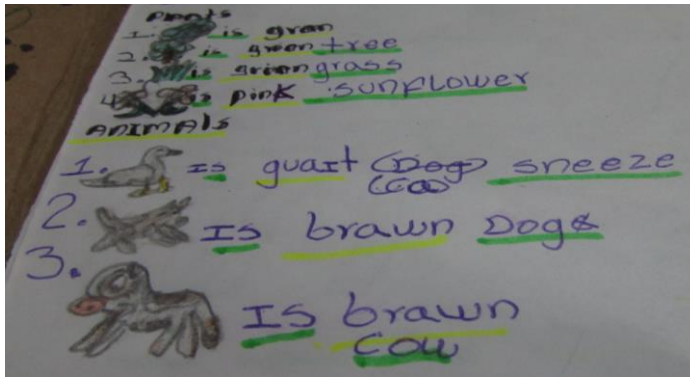 Plants
1. is gran
2. is green tree
3. is grien grass
4. is pink sunflower
ANIMALS
1. Is guait sneeze
2. Is brawn Dogs
3. Is brawn
cow